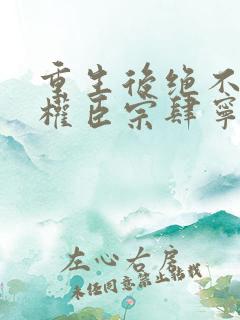 重生後绝不
權臣宗肆寧
左心右房
未经同意禁止转载